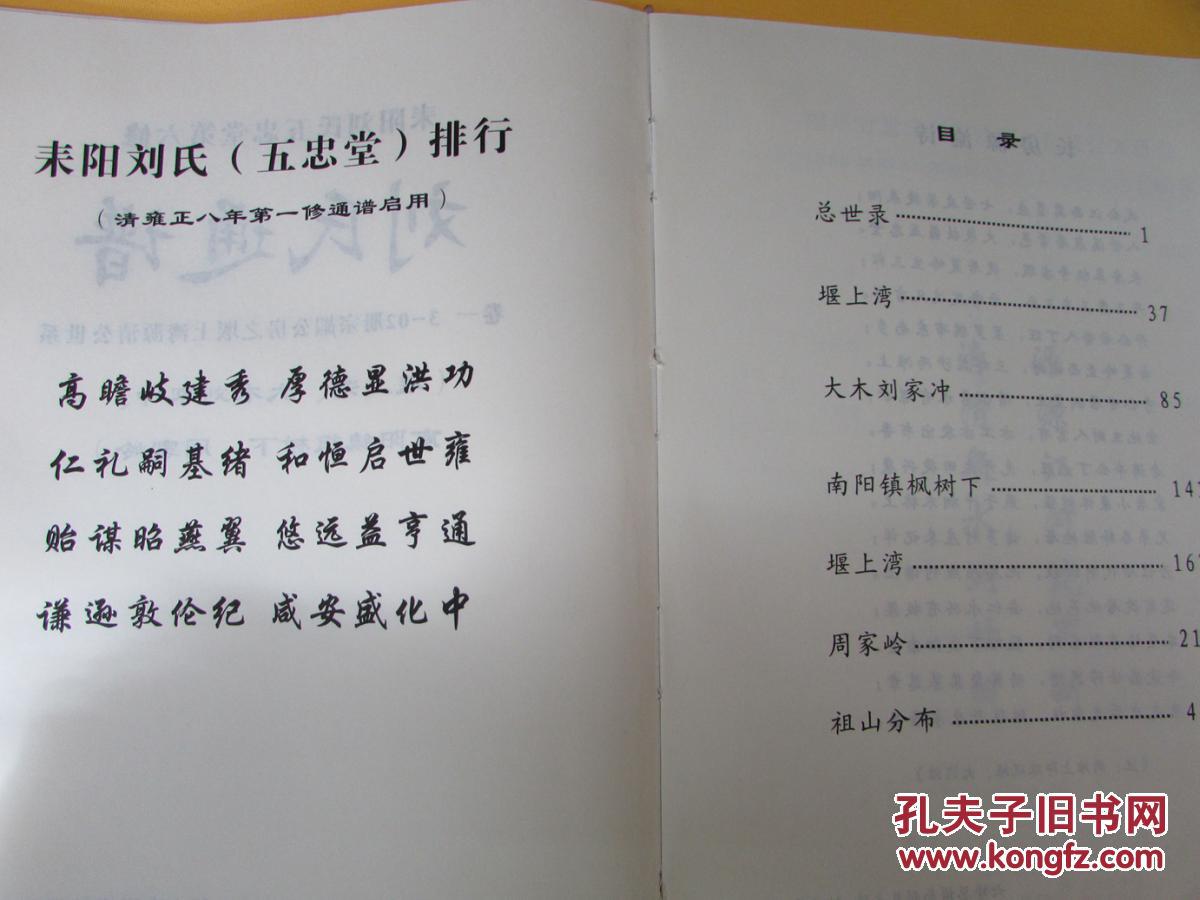 耒阳刘氏(五忠堂)排行
(清雍正八年第一修通谱启用)
高瞻岐建秀 厚德显洪功
仁礼嗣基绪 和恒启世雍
贻谋昭燕翼 悠远益亨通
谦逊敦伦纪 咸安盛化中
目 录
总世录 1
堰上湾 37
大木刘家冲 85
南阳镇枫树下 14
堰上湾 16
周家岭 21
祖山分布 4
孔夫子旧书网
www.kongfz.com